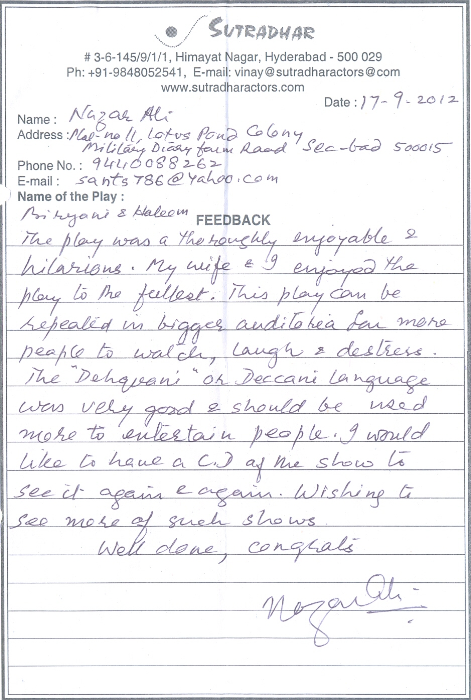 SUTRADHAR
# 3-6-145/9/1/1, Himayat Nagar, Hyderabad - 500 029
Ph: +91-9848052541, E-mail: vinay@sutradharactors.com
www.sutradharactors.com
Date : 17-9-2012
Name : Nazar Ali
Address : No 11, Lotus Pond Colony
Military Diary farm Road Sec-bad 500015
Phone No. : 9440088262
E-mail : sants786@yahoo.com
Name of the Play :
Biryani & Haleem
FEEDBACK
The play was a thoroughly enjoyable &
hilarious. My wife & I enjoyed the
play to the fullest. This play can be
repeated in bigger auditoria for more
people to watch, laugh & destress.
The "Dehquani" or Deccani Language
was very good & should be used
more to entertain people. I would
like to have a C.D of the show to
see it again & again. Wishing to
see more of such shows
Well done, congrats
Nazar Ali